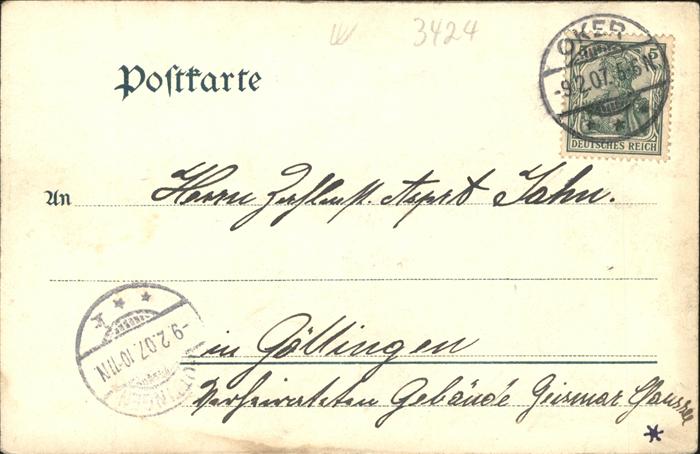 3424
OKER
-9.2.07.5-6N.
5
DEUTSCHES REICH
Postkarte
An Herrn Zahlmst. Aspirt Jahn.
in Göttingen
Verheirateten Gebäude Geismar Chaussee
-9.2.07.10-11N
GÖTTINGEN